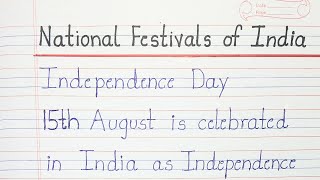 National Festivals of India
Independence Day
15th August is celebrated
in India as Independence